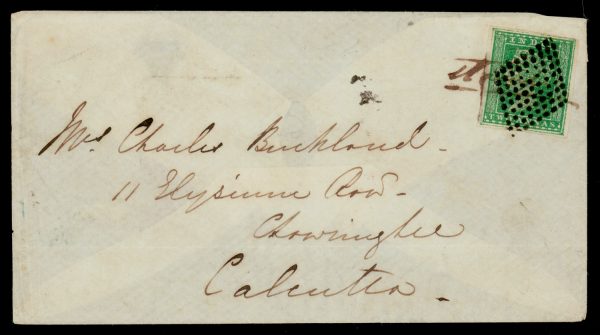 INDIA
Mrs Charles Buckland -
11 Elysium Row -
Chowringhee
Calcutta -